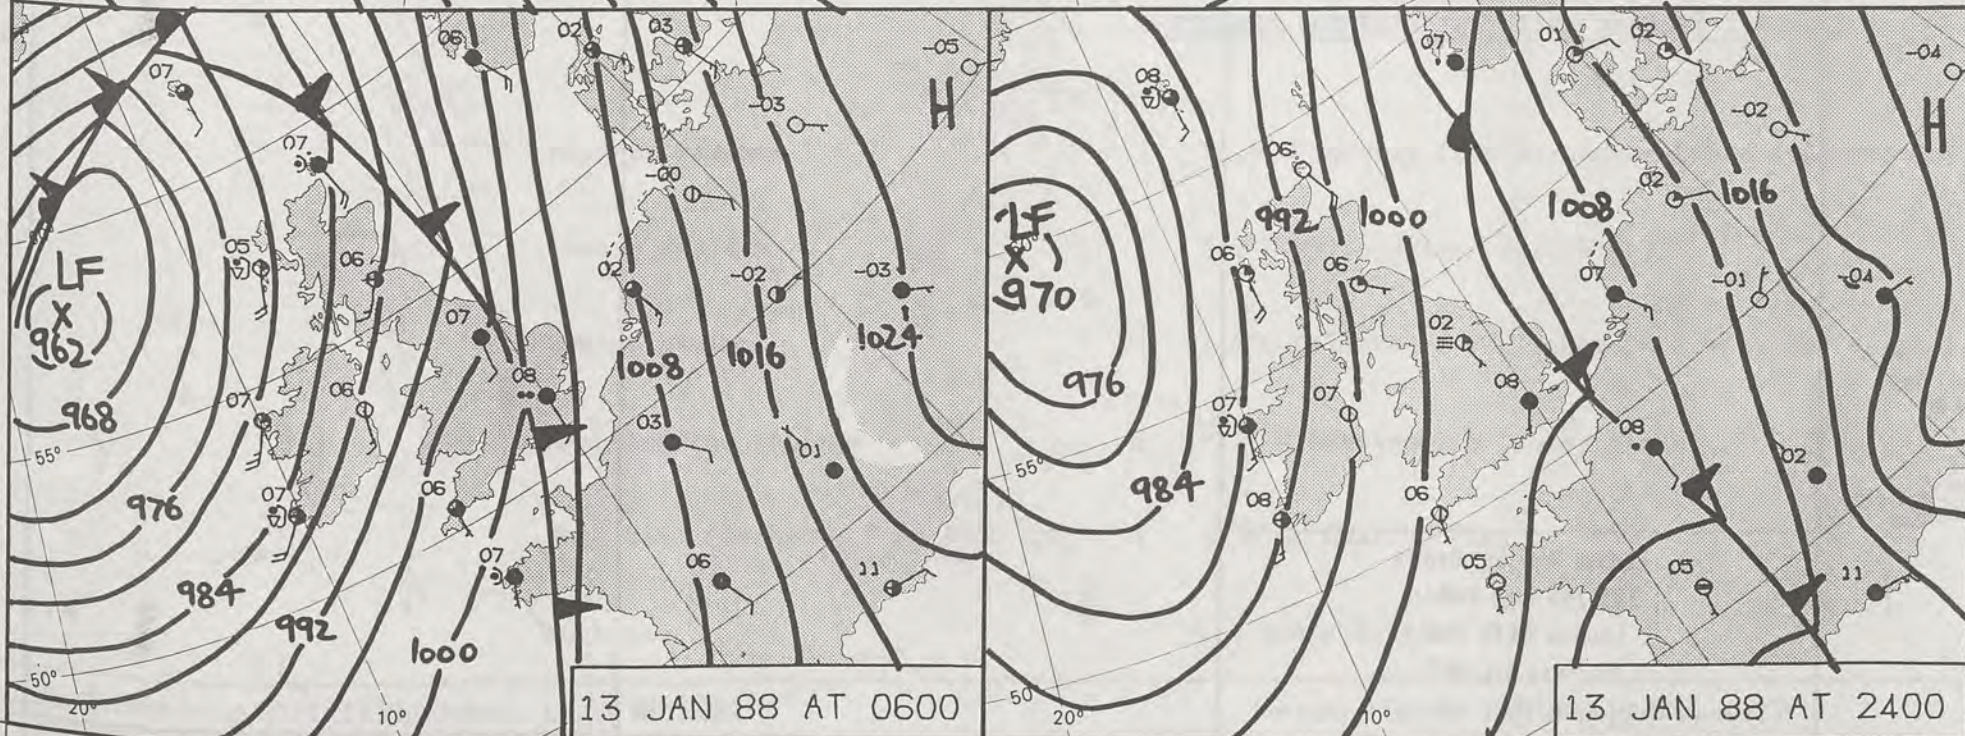 06
02
03
-05
07
H
-03
07
-00
05
06
LF
X
962
02
-02
-03
07
1024
1008
1016
08
968
07
06
03
01
55°
976
07
06
984
07
06
11
992
1000
50°
20°
10°
13 JAN 88 AT 0600
07
01
02
-04
08
H
-02
06
02
992
1000
1008
1016
LF
X
970
06
06
07
-01
-04
02
976
08
07
07
08
55°
984
08
06
02
05
05
11
50°
20°
10°
13 JAN 88 AT 2400